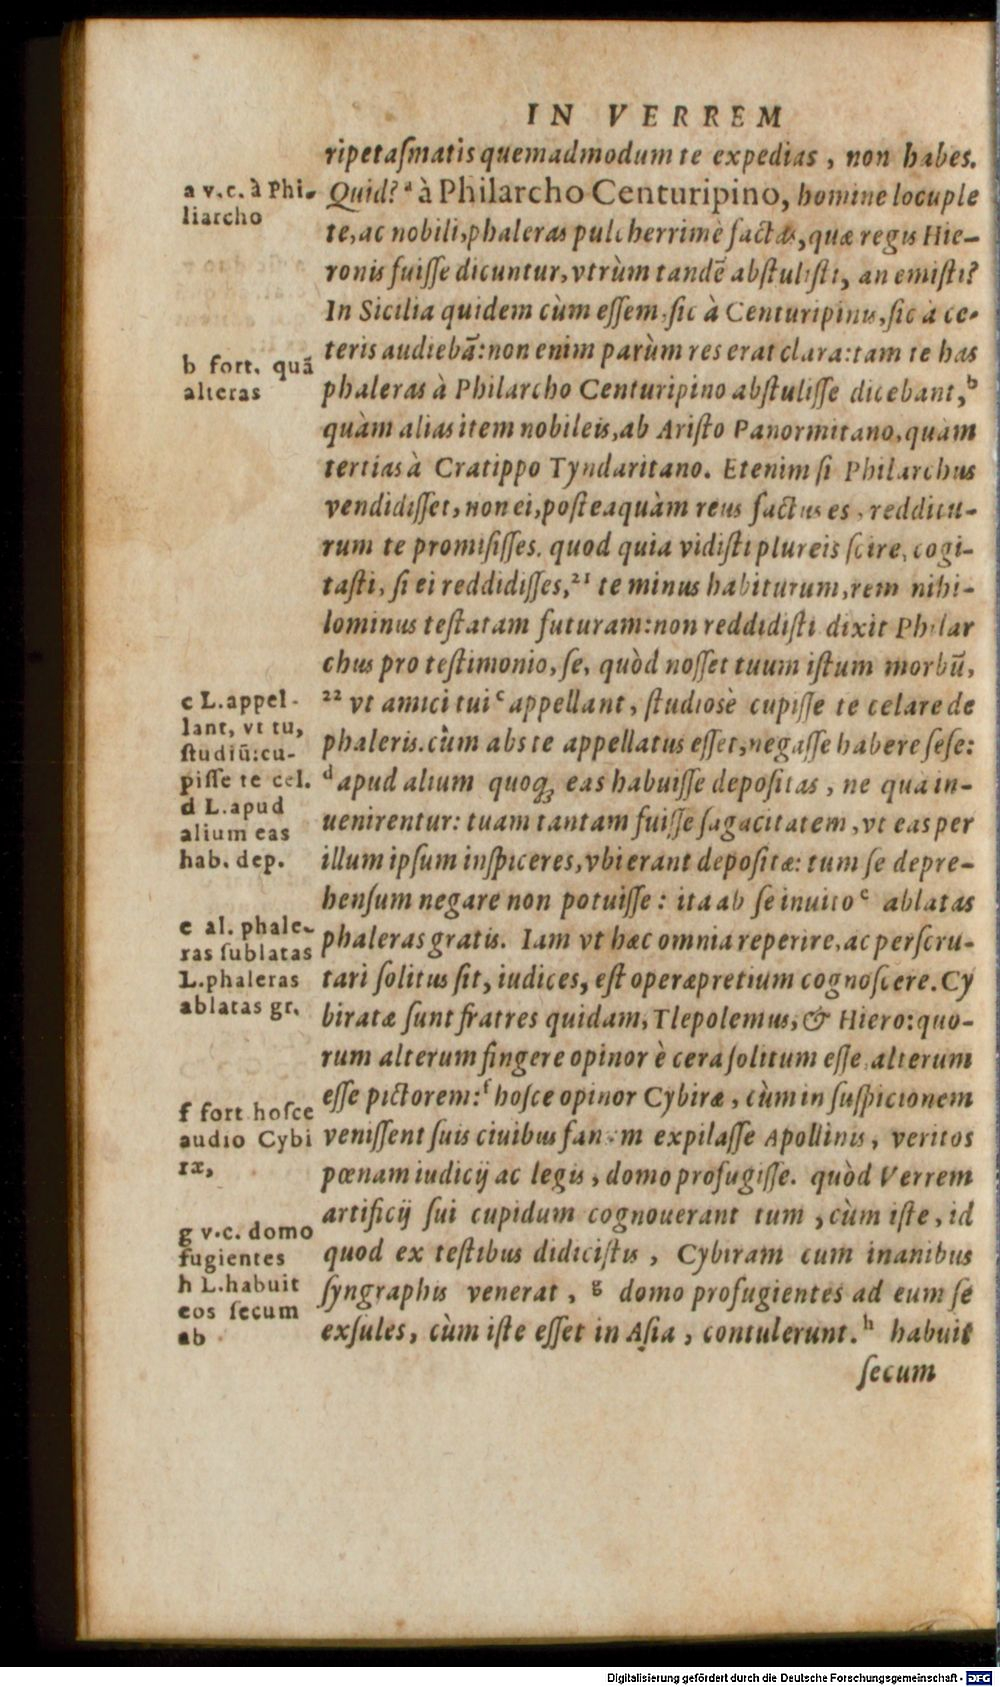 IN VERREM
ripetaſmatis quemadmodum te expedias, non habes.
Quid? ᵃ à Philarcho Centuripino, homine locuple
te, ac nobili, phaleras pulcherrimè factas, quæ regis Hie-
ronis fuiſſe dicuntur, vtrùm tandē abſtuliſti, an emiſti?
In Sicilia quidem cùm eſſem, ſic à Centuripinis, ſic à ce-
teris audiebā: non enim parùm res erat clara: tam te has
phaleras à Philarcho Centuripino abſtuliſſe dicebant, ᵇ
quàm alias item nobileis, ab Ariſto Panormitano, quàm
tertias à Cratippo Tyndaritano. Etenim ſi Philarchus
vendidiſſet, non ei, poſteaquàm reus factus es, redditu-
rum te promiſiſſes. quod quia vidiſti plureis ſcire, cogi-
taſti, ſi ei reddidiſſes, ²¹ te minus habiturum, rem nihi-
lominus teſtatam futuram: non reddidiſti dixit Philar
chus pro teſtimonio, ſe, quòd noſſet tuum iſtum morbū,
²² vt amici tui ᶜ appellant, ſtudiosè cupiſſe te celare de
phaleris. cùm abs te appellatus eſſet, negaſſe habere ſeſe:
ᵈ apud alium quoq; eas habuiſſe depoſitas, ne qua in-
uenirentur: tuam tantam fuiſſe ſagacitatem, vt eas per
illum ipſum inſpiceres, vbi erant depoſitæ: tum ſe depre-
henſum negare non potuiſſe: ita ab ſe inuito ᵉ ablatas
phaleras gratis. Iam vt hæc omnia reperire, ac perſcru-
tari ſolitus ſit, iudices, eſt operæpretium cognoſcere. Cy
biratæ ſunt fratres quidam, Tlepolemus, & Hiero: quo-
rum alterum fingere opinor è cera ſolitum eſſe, alterum
eſſe pictorem: ᶠ hoſce opinor Cybiræ, cùm in ſuſpicionem
veniſſent ſuis ciuibus fanum expilaſſe Apollinis, veritos
pœnam iudicij ac legis, domo profugiſſe. quòd Verrem
artificij ſui cupidum cognouerant tum, cùm iſte, id
quod ex teſtibus didiciſtis, Cybiram cum inanibus
ſyngraphis venerat, ᵍ domo profugientes ad eum ſe
exſules, cùm iſte eſſet in Aſia, contulerunt. ʰ habuit
ſecum
a v.c. à Phi-
liarcho
b fort. quā
alteras
c L. appel-
lant, vt tu,
ſtudiū: cu-
piſſe te cel.
d L. apud
alium eas
hab. dep.
e al. phale-
ras ſublatas
L. phaleras
ablatas gr.
f fort hoſce
audio Cybi
ræ,
g v.c. domo
fugientes
h L. habuit
eos ſecum
ab
Digitalisierung gefördert durch die Deutsche Forschungsgemeinschaft - DFG